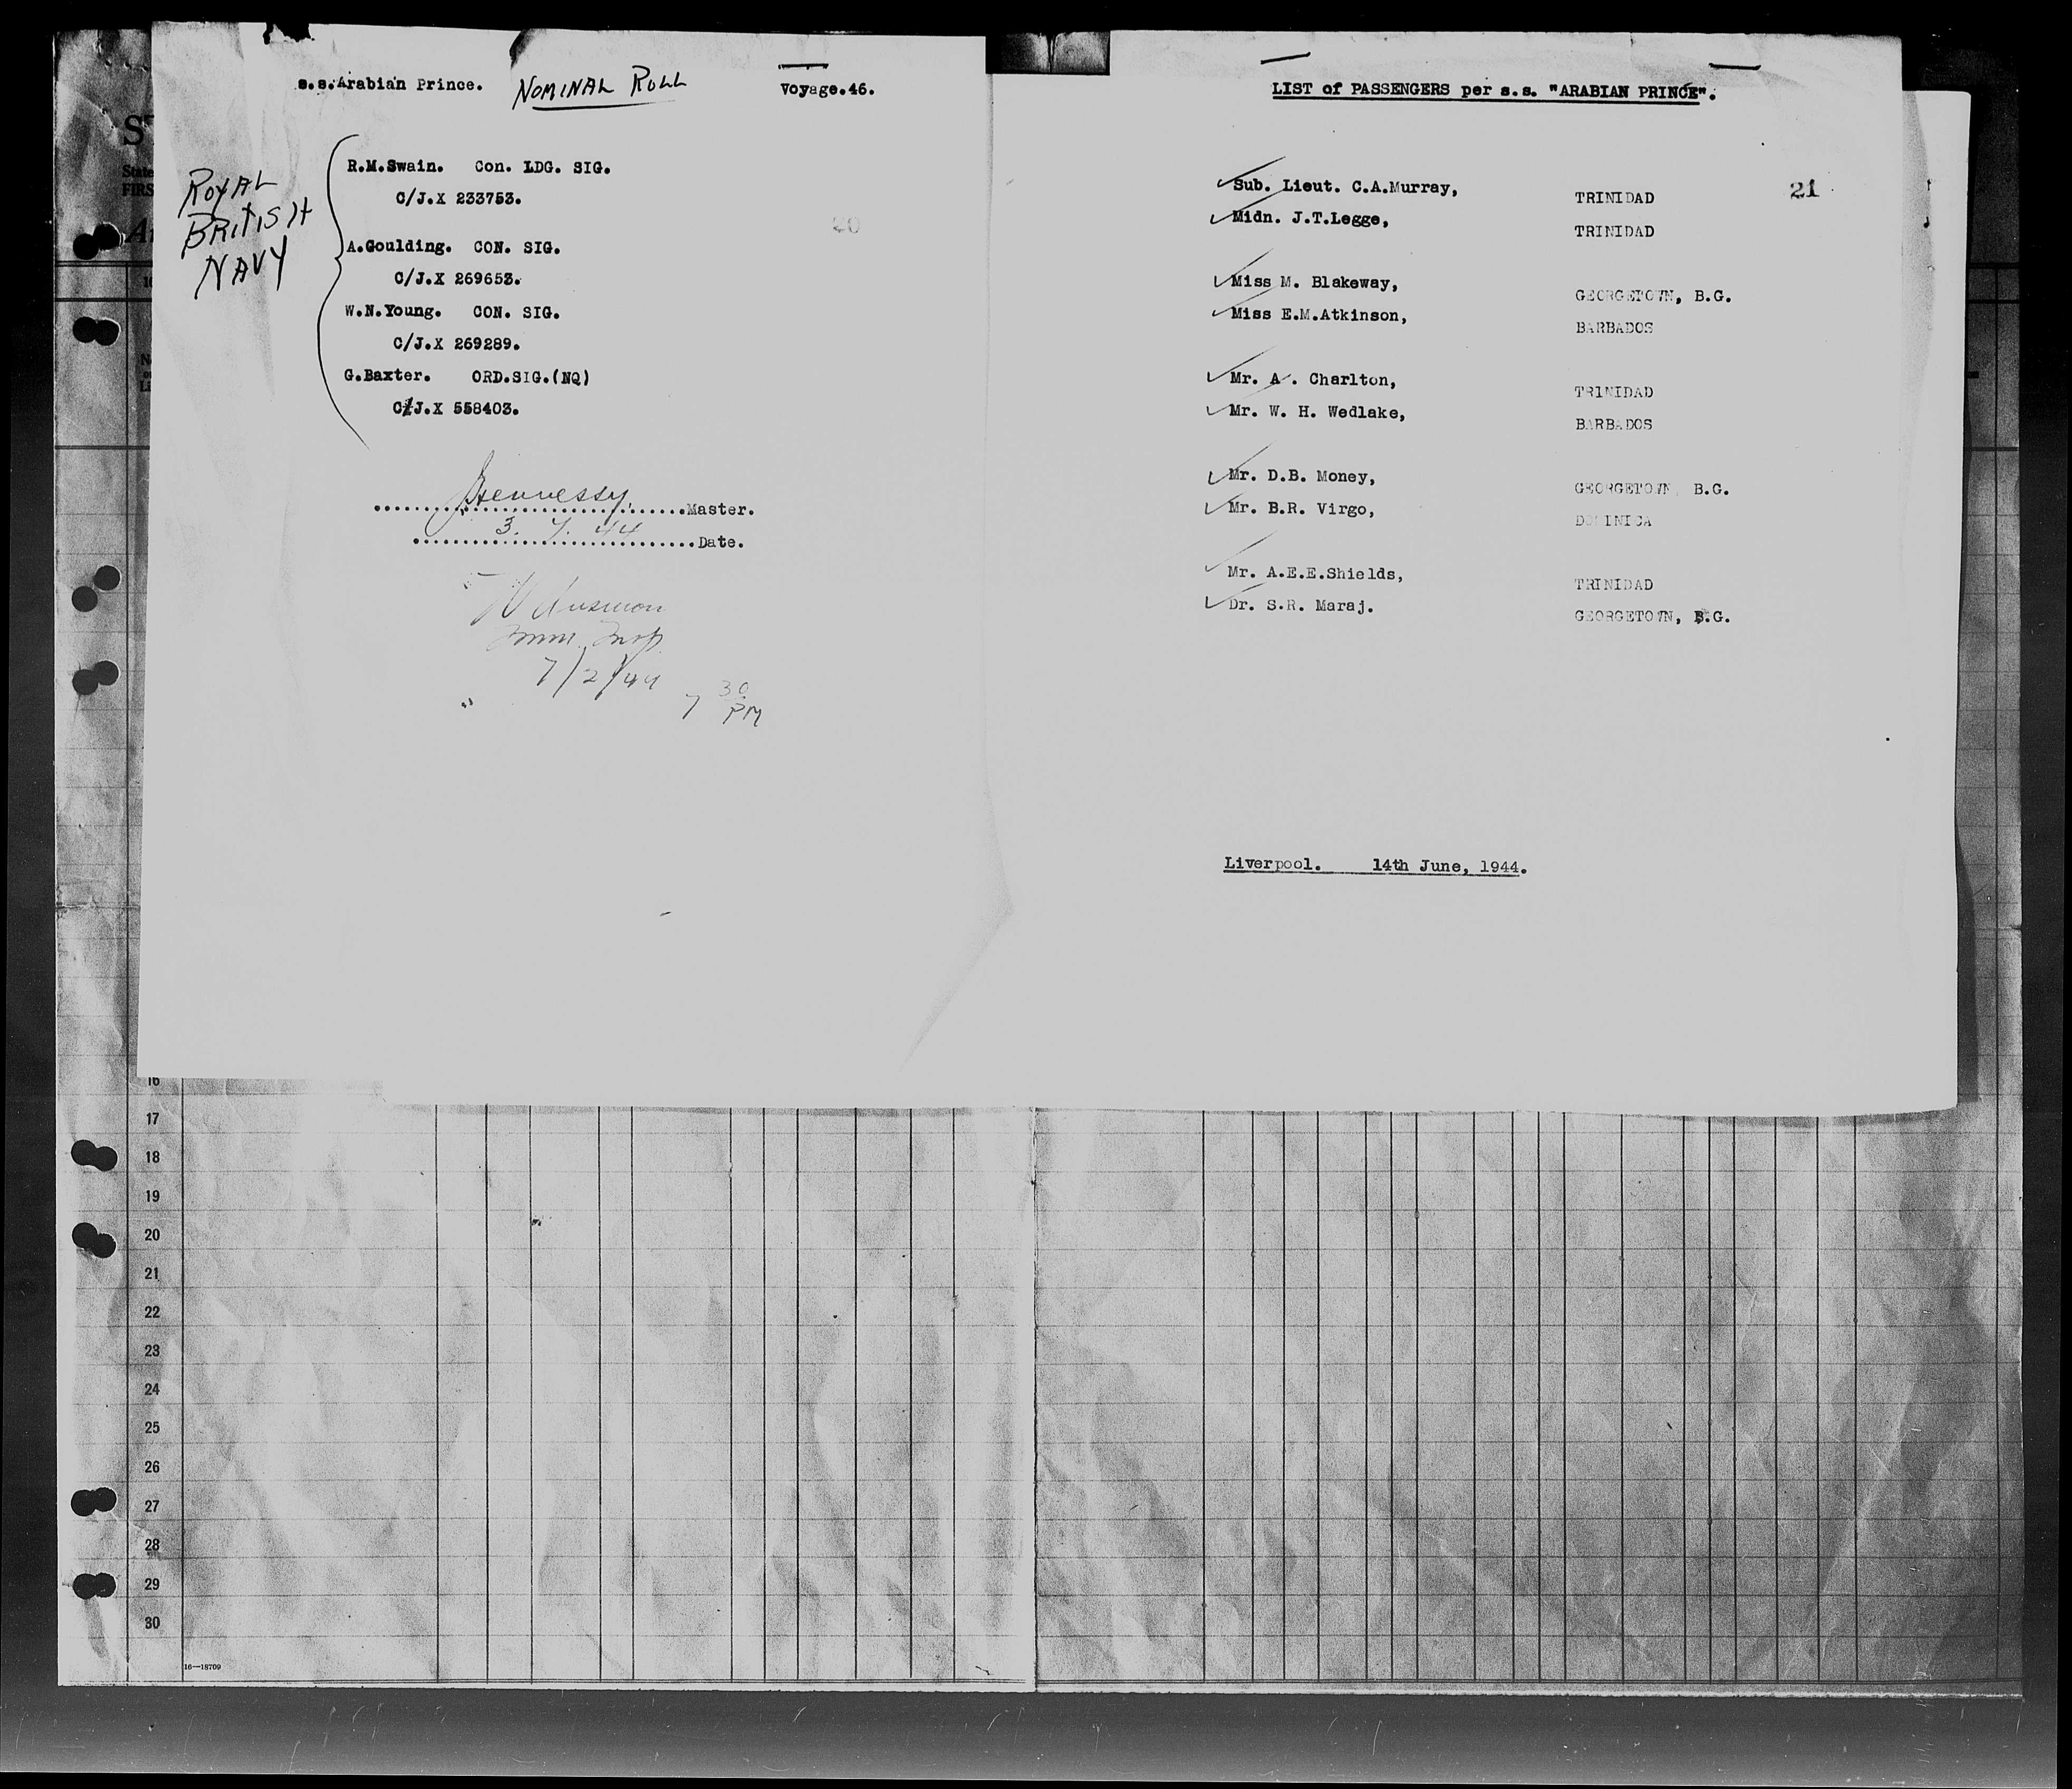 s.s.Arabian Prince. NOMINAL ROLL Voyage.46.
ROYAL
BRITISH
NAVY
R.M.Swain. Con. LDG. SIG.
C/J.X 233753.
A.Goulding. CON. SIG.
C/J.X 269653.
W.N.Young. CON. SIG.
C/J.X 269289.
G.Baxter. ORD.SIG.(NQ)
C/J.X 558403.
Hennessy Master.
3. 7. 44 Date.
Imm. Insp.
7/2/44 7 30 PM
20
LIST of PASSENGERS per s.s. "ARABIAN PRINCE".
21
Sub. Lieut. C.A.Murray, TRINIDAD
Midn. J.T.Legge, TRINIDAD
Miss M. Blakeway, GEORGETOWN, B.G.
Miss E.M.Atkinson, BARBADOS
Mr. A. Charlton, TRINIDAD
Mr. W. H. Wedlake, BARBADOS
Mr. D.B. Money, GEORGETOWN, B.G.
Mr. B.R. Virgo, DOMINICA
Mr. A.E.E.Shields, TRINIDAD
Dr. S.R. Maraj. GEORGETOWN, B.G.
Liverpool. 14th June, 1944.
16
17
18
19
20
21
22
23
24
25
26
27
28
29
30
16—18709